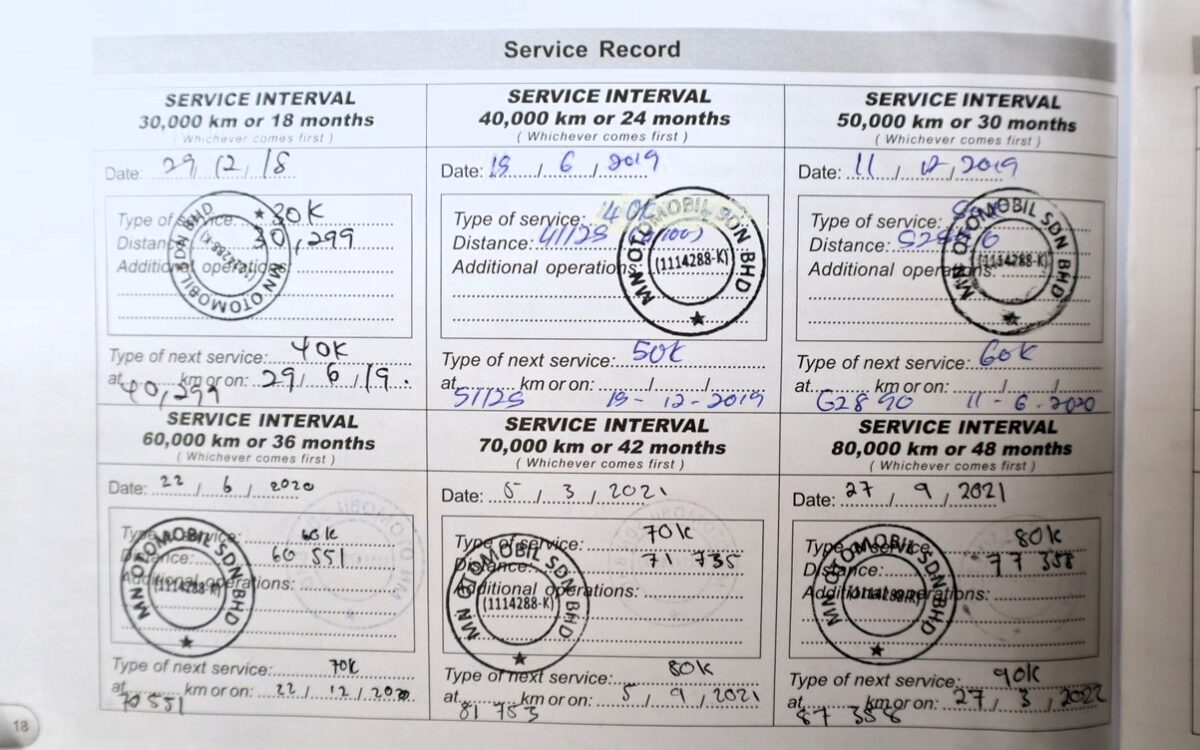 Service Record
SERVICE INTERVAL
30,000 km or 18 months
( Whichever comes first )
Date: 29 / 12 / 18
Type of service: 30K
Distance: 30,299
Additional operations:
Type of next service: 40K
at 40,299 km or on: 29 / 6 / 19.
MN OTOMOBIL SDN BHD
SERVICE INTERVAL
40,000 km or 24 months
( Whichever comes first )
Date: / 6 / 2019
Type of service: 40K
Distance: 41125
Additional operations
Type of next service: 50K
at 51125 km or on: - 12 - 2019
MN OTOMOBIL SDN BHD
(1114288-K)
SERVICE INTERVAL
50,000 km or 30 months
( Whichever comes first )
Date: 11 / 12 / 2019
Type of service:
Distance:
Additional operations:
Type of next service: 60K
at 62890 km or on: 11 - 6 - 2020
MN OTOMOBIL SDN BHD
(1114288-K)
SERVICE INTERVAL
60,000 km or 36 months
( Whichever comes first )
Date: 22 / 6 / 2020
Type of service: 60K
Distance: 60 551
Additional operations:
Type of next service: 70K
at 70551 km or on: 22 / 12 / 2020
MN OTOMOBIL SDN BHD
(1114288-K)
SERVICE INTERVAL
70,000 km or 42 months
( Whichever comes first )
Date: 5 / 3 / 2021
Type of service: 70K
Distance: 71 735
Additional operations:
Type of next service: 80K
at 81 753 km or on: 5 / 9 / 2021
MN OTOMOBIL SDN BHD
(1114288-K)
SERVICE INTERVAL
80,000 km or 48 months
( Whichever comes first )
Date: 27 / 9 / 2021
Type of service: 80K
Distance: 77 358
Additional operations:
Type of next service: 90K
at 87 358 km or on: 27 / 3 / 2022
MN OTOMOBIL SDN BHD
(1114288-K)
18